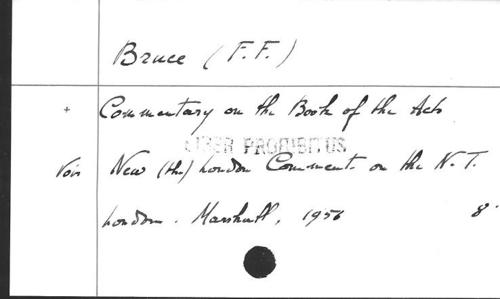 Bruce (F.F.)
+ Commentary on the Book of the Acts
LIBER PROHIBITUS
Voir New (the) London Comment. on the N.T.
London. Marshall, 1956 8°